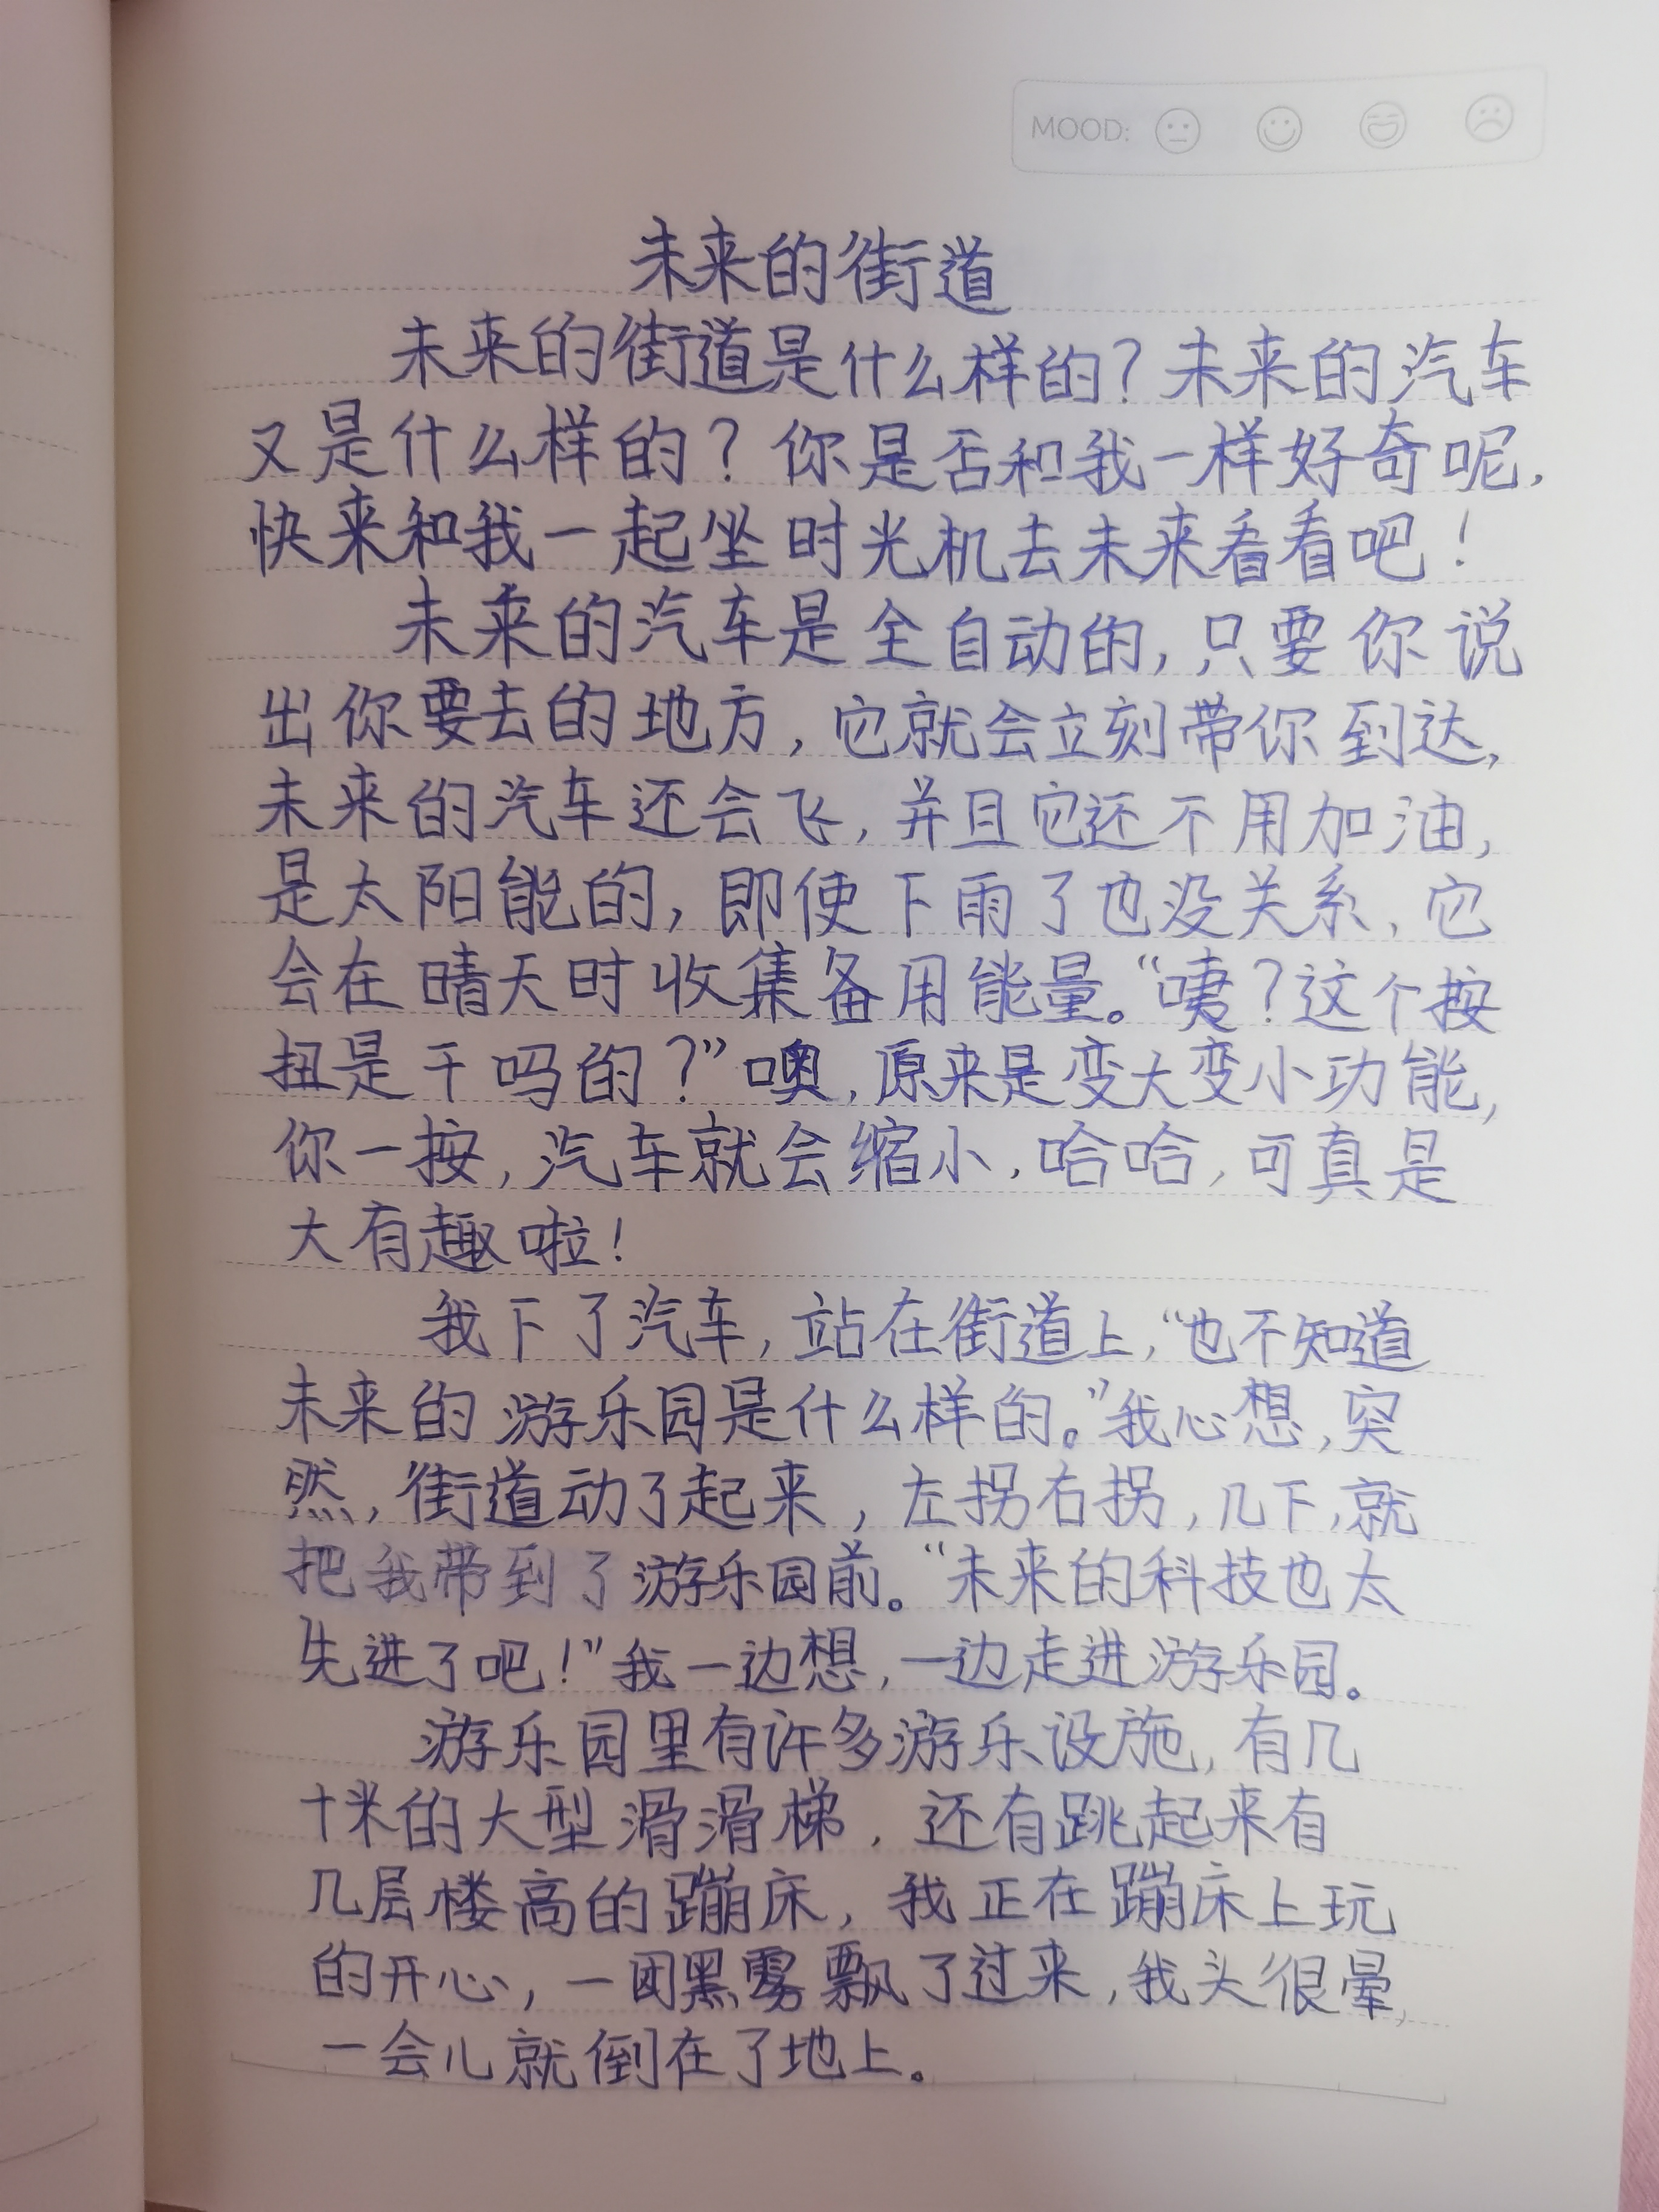 MOOD:
未来的街道
未来的街道是什么样的?未来的汽车
又是什么样的?你是否和我一样好奇呢,
快来和我一起坐时光机去未来看看吧!
未来的汽车是全自动的,只要你说
出你要去的地方,它就会立刻带你到达,
未来的汽车还会飞,并且它还不用加油,
是太阳能的,即使下雨了也没关系,它
会在晴天时收集备用能量。“咦?这个按
扭是干吗的?”噢,原来是变大变小功能,
你一按,汽车就会缩小,哈哈,可真是
大有趣啦!
我下了汽车,站在街道上,“也不知道
未来的游乐园是什么样的。”我心想,突
然,街道动了起来,左拐右拐,几下,就
把我带到了游乐园前。“未来的科技也太
先进了吧!”我一边想,一边走进游乐园。
游乐园里有许多游乐设施,有几
十米的大型滑滑梯,还有跳起来有
几层楼高的蹦床,我正在蹦床上玩
的开心,一团黑雾飘了过来,我头很晕,
一会儿就倒在了地上。